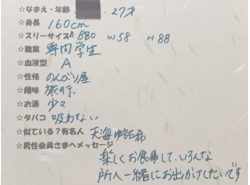 ☆なまえ・年齢 27才
☆身長 160cm
☆スリーサイズ B80 W58 H88
☆職業 専門学生
☆血液型 A
☆性格 のんびり屋
☆趣味 旅行
☆お酒 少々
☆タバコ 吸わない
☆似ている?有名人 天海祐希
☆男性会員さまへメッセージ
楽しくお食事して、いろんな
所へ一緒にお出かけしたいです